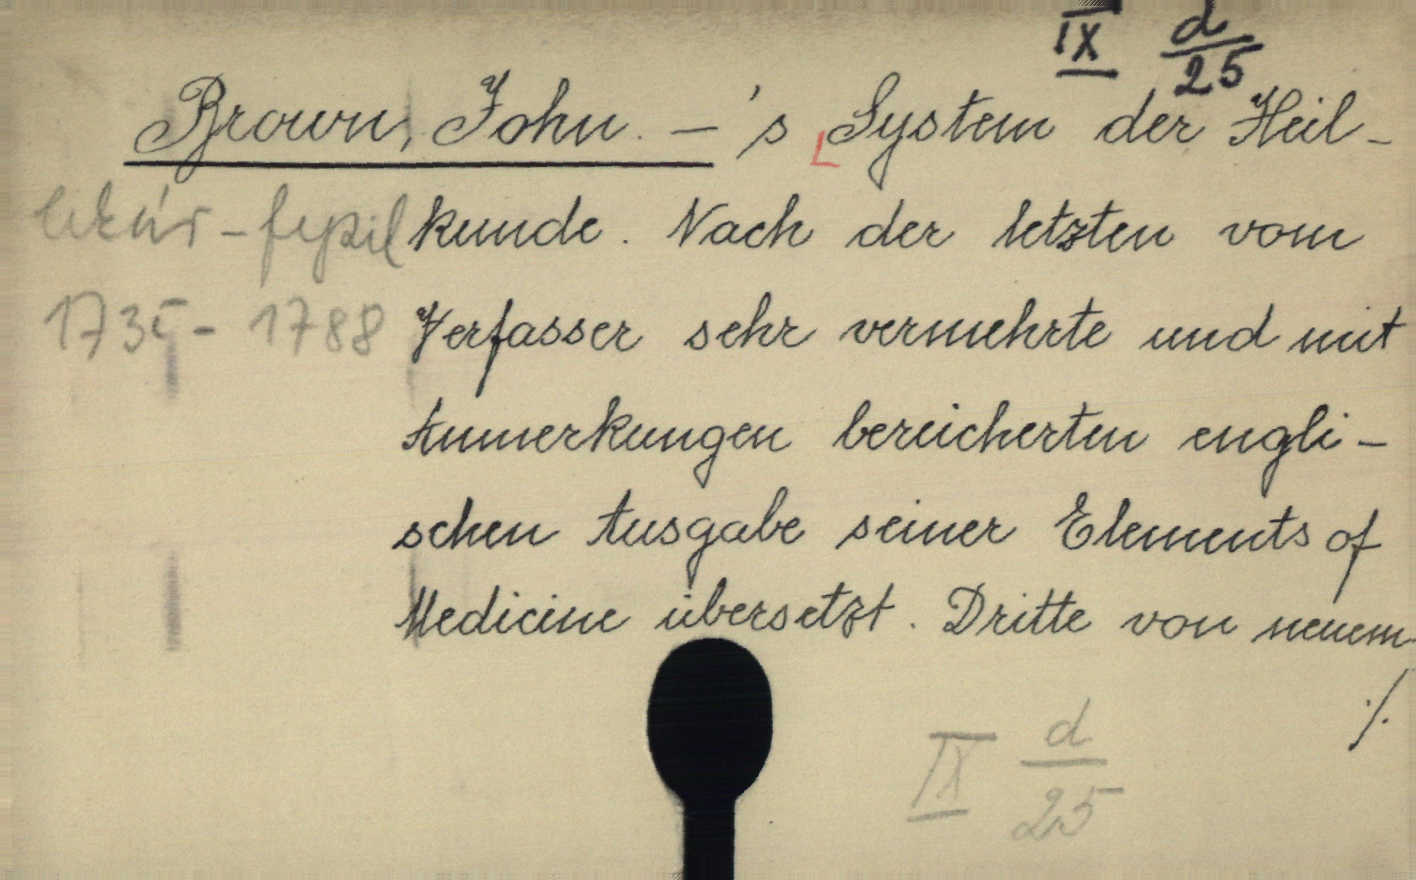 IX d/25
Brown, John. – 's System der Heil-
lékař - fysik
kunde. Nach der letzten vom
1735 - 1788
Verfasser sehr vermehrte und mit
Anmerkungen bereicherten engli-
schen Ausgabe seiner Elements of
Medicine übersetzt. Dritte von neuem
./.
IX d/25